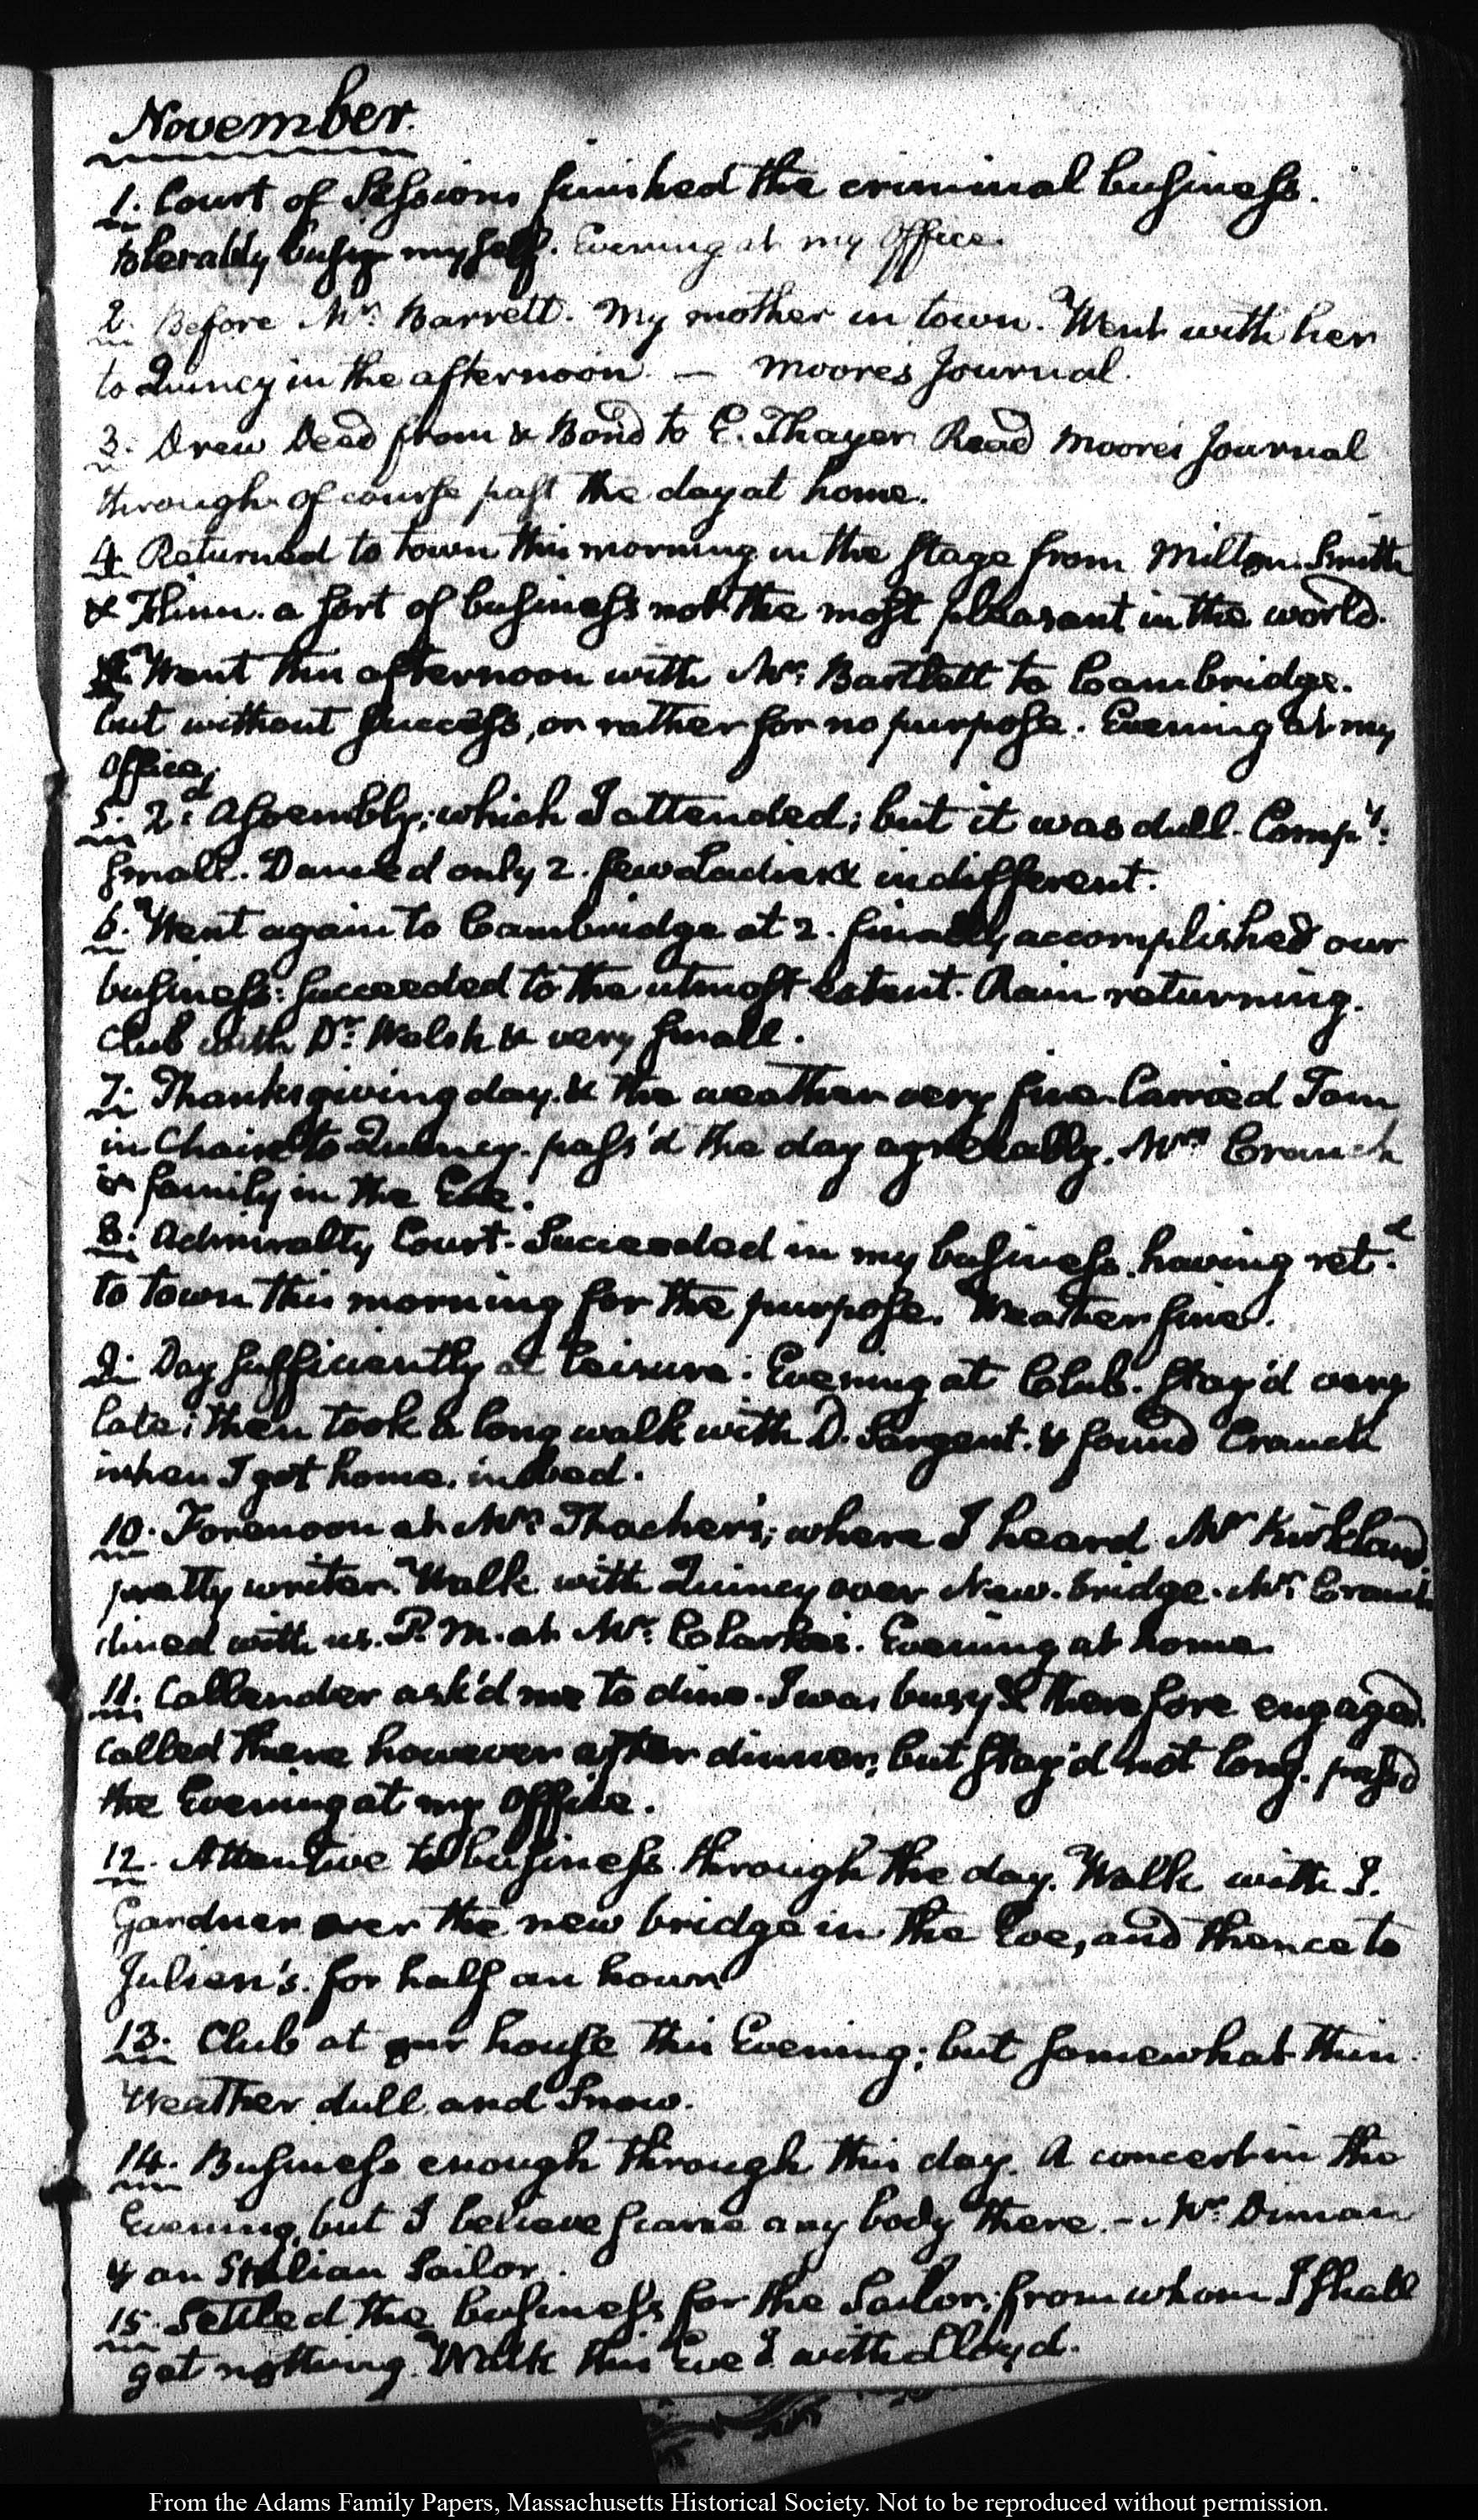 November.
1. Court of Sessions finished the criminal business.
tolerably busy myself. Evening at my Office.
2. Before Mr. Barrett. My mother in town. Went with her
to Quincy in the afternoon. — Moore's Journal.
3. Drew Deed from & Bond to E. Thayer Read Moore's Journal
through. of course past the day at home.
4. Returned to town this morning in the stage from Milton. Smith
& Thinn. a sort of business not the most pleasant in the world.
Went this afternoon with Mr. Bartlett to Cambridge.
but without success, or rather for no purpose. Evening at my
Office,
5. 2d. Assembly; which I attended; but it was dull. Compy:
small. Danced only 2. few Ladies & indifferent.
6. Went again to Cambridge at 2. finally accomplished our
business: succeeded to the utmost extent. Rain returning.
Club with Dr. Welsh & very small.
7. Thanksgiving day. & the weather very fine. Carried Tom
in Chaise to Quincy. pass'd the day agreeably. Mrs Cranch
& family in the Eve.
8. Admiralty Court. Succeeded in my business. having retd.
to town this morning for the purpose. Weather fine.
9. Day sufficiently at leisure: Evening at Club. Stay'd very
late: then took a long walk with D. Sargent. & found Cranch
when I got home. in bed.
10. Forenoon at Mr. Thacher's; where I heard Mr Kirkland.
pretty writer. Walk with Quincy over New. bridge. Mr. Cranch
dined with us. P.M. at Mr. Clarke's. Evening at home.
11. Callender ask'd me to dine. I was busy & therefore engaged.
called there however after dinner; but stay'd not long. passd
the Evening at my Office.
12. Attentive to business through the day. Walk with J.
Gardner over the new bridge in the Eve, and thence to
Julien's. for half an hour
13. Club at our house this Evening; but somewhat thin.
Weather dull and Snow.
14. Business enough through this day. A concert in the
Evening, but I believe scarce any body there. — Mr. Diman
& an Italian Sailor.
15. Settled the business for the Sailor; from whom I shall
get nothing. Walk this Eve. with Lloyd.
From the Adams Family Papers, Massachusetts Historical Society. Not to be reproduced without permission.